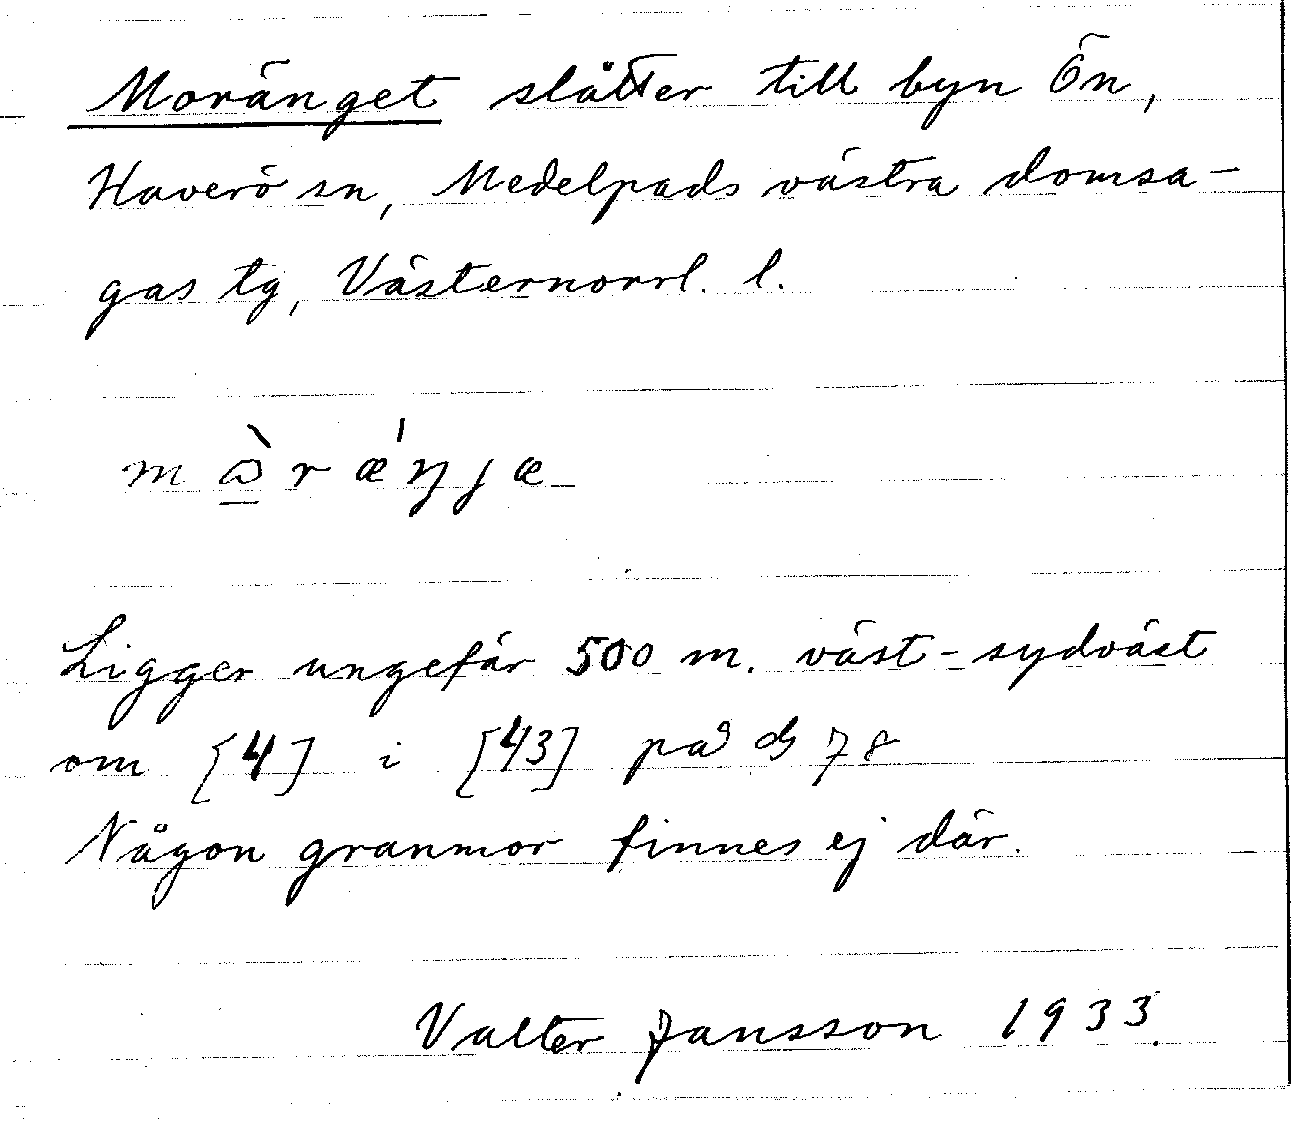 Moränget slåtter till byn Ön,
Haverö sn, Medelpads västra domsa-
gas tg, Västernorrl. l.
Ligger ungefär 500 m. väst-sydväst
om [4] i [43] på 78
Någon granmor finnes ej där.
Valter Jansson 1933.